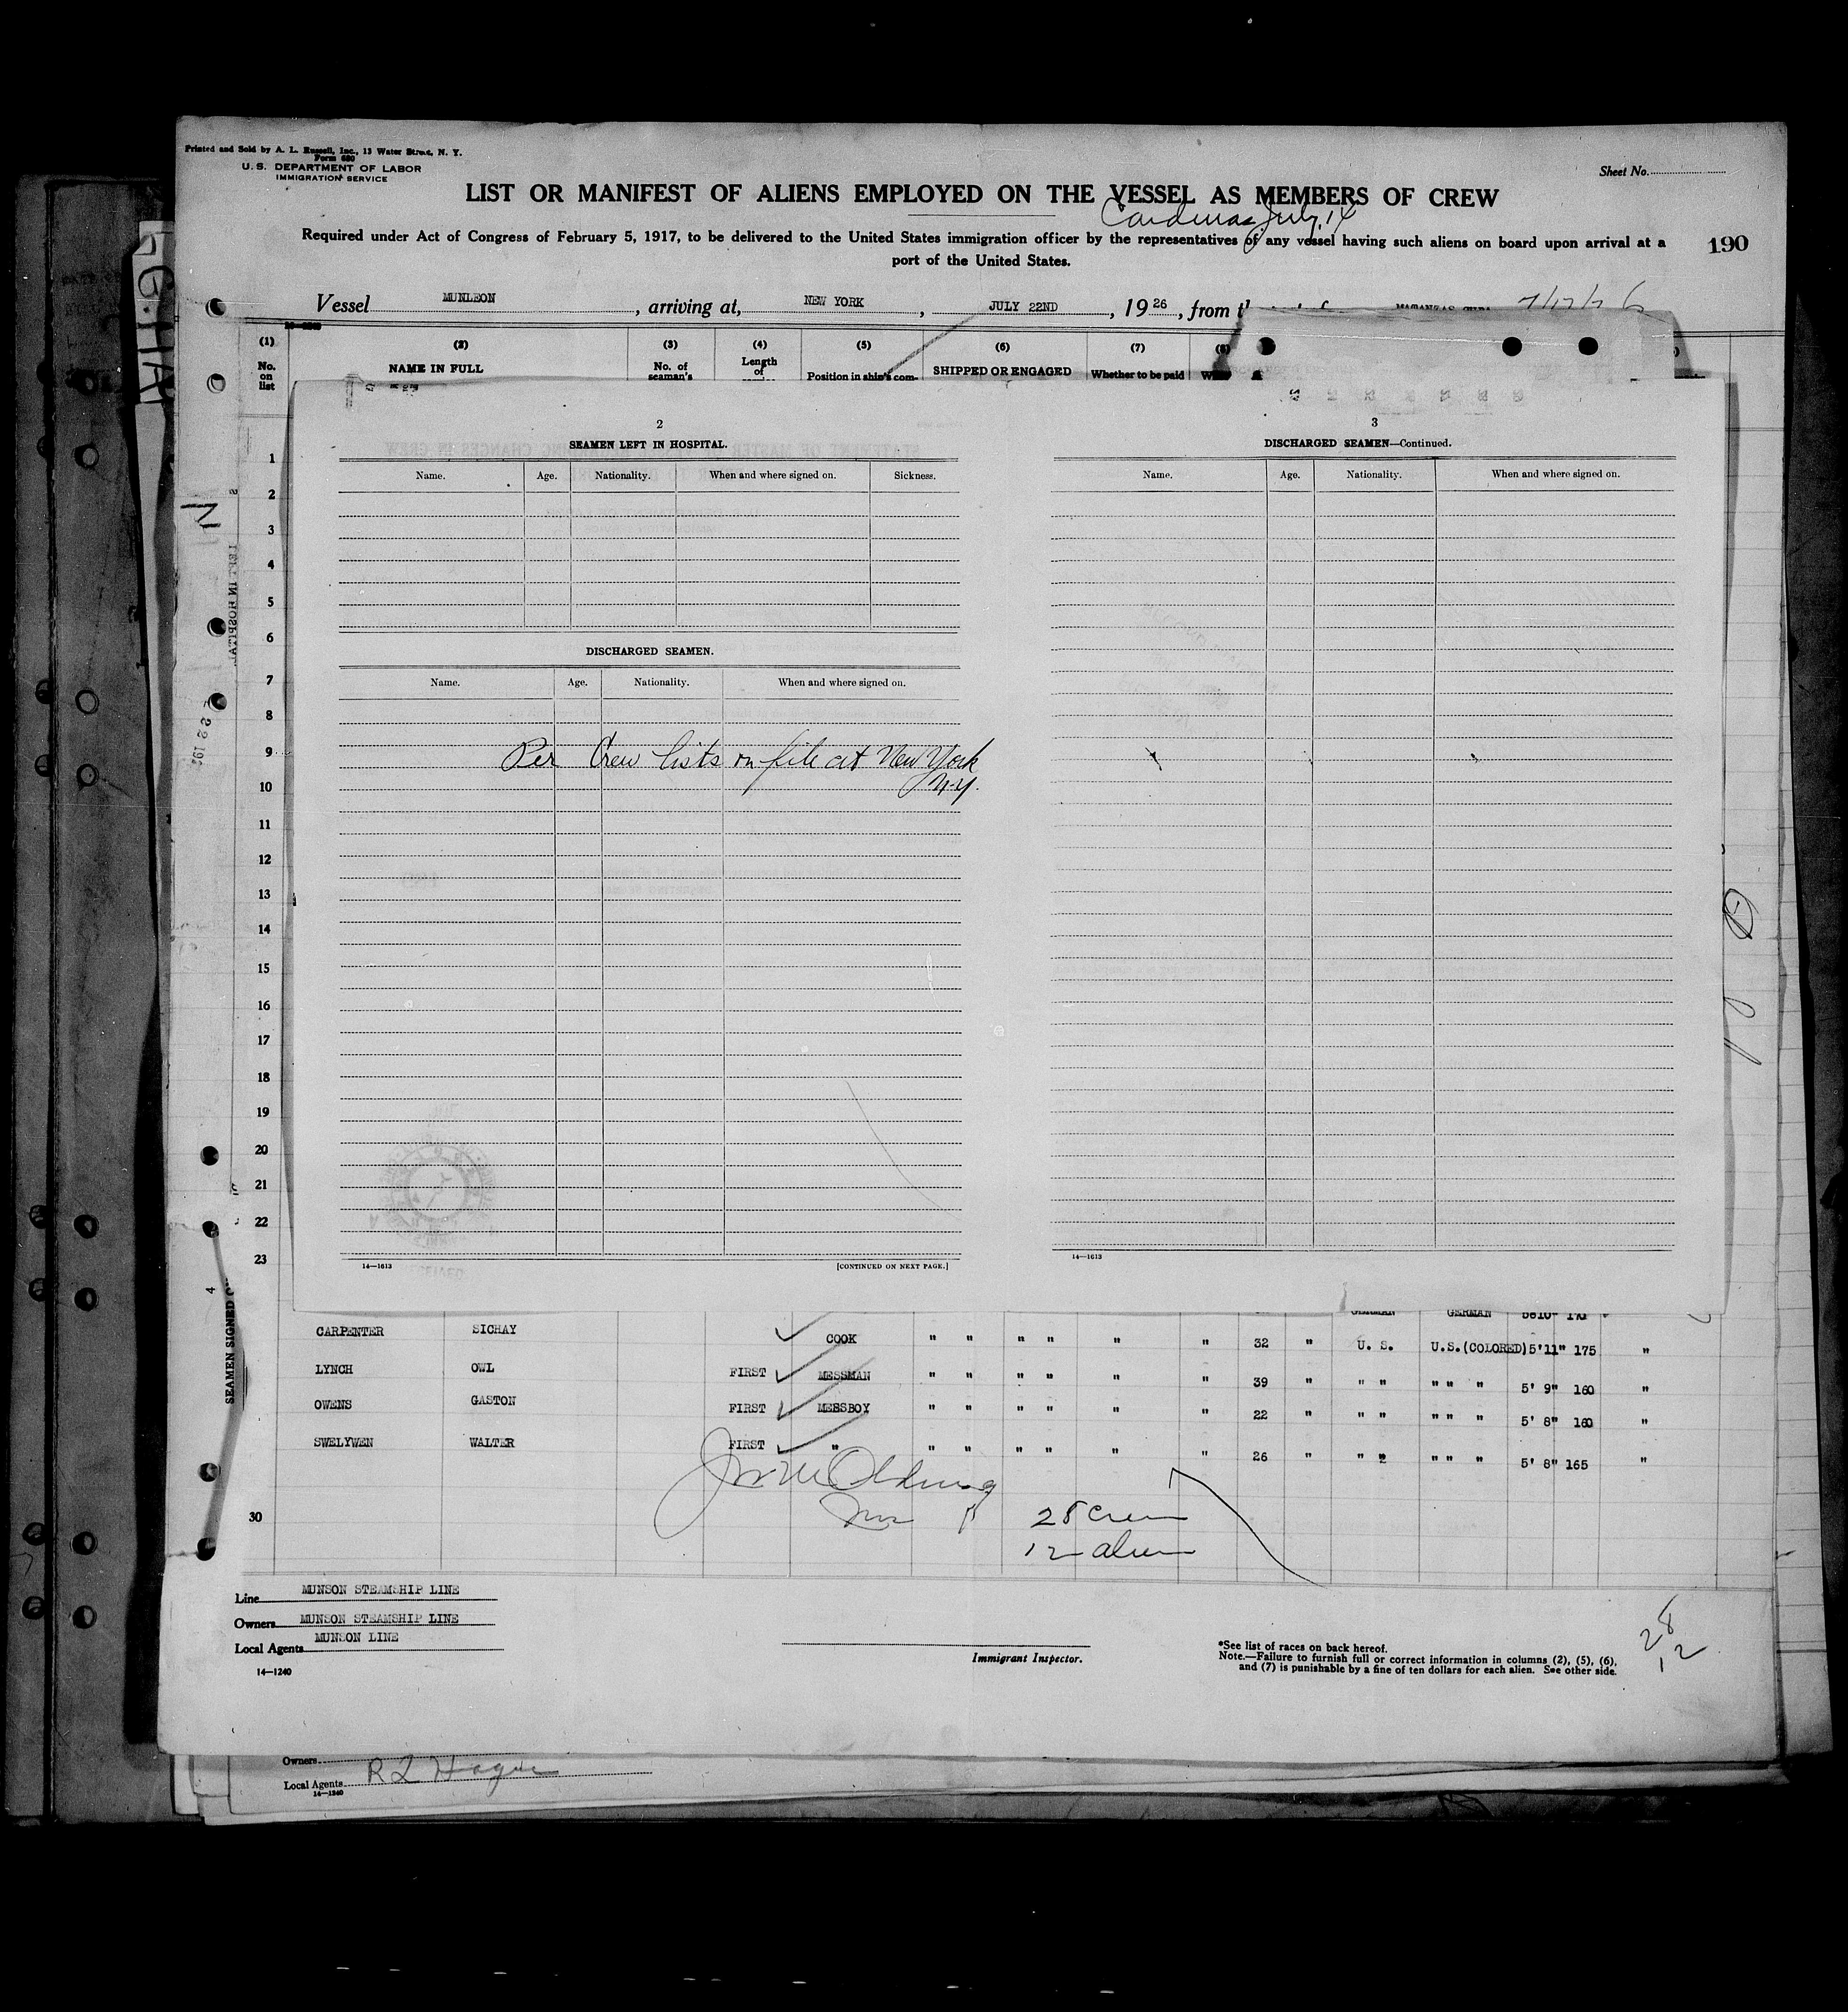 Printed and Sold by A. L. Russell, Inc., 13 Water Street, N. Y.
Form 680
U. S. DEPARTMENT OF LABOR
IMMIGRATION SERVICE
Sheet No.
LIST OR MANIFEST OF ALIENS EMPLOYED ON THE VESSEL AS MEMBERS OF CREW
Cardenas July 14
Required under Act of Congress of February 5, 1917, to be delivered to the United States immigration officer by the representatives of any vessel having such aliens on board upon arrival at a
port of the United States.
190
Vessel MUNLEON, arriving at, NEW YORK, JULY 22ND, 1926, from
(1) (2) (3) (4) (5) (6) (7) (8)
No. on list NAME IN FULL No. of seaman's Length of Position in ship's com- SHIPPED OR ENGAGED Whether to be paid
2
SEAMEN LEFT IN HOSPITAL.
Name. Age. Nationality. When and where signed on. Sickness.
DISCHARGED SEAMEN.
Name. Age. Nationality. When and where signed on.
Per Crew lists on file at New York
N.Y.
14—1613 [CONTINUED ON NEXT PAGE.]
3
DISCHARGED SEAMEN—Continued.
Name. Age. Nationality. When and where signed on.
14—1613
1
2
3
4
5
6
7
8
9
10
11
12
13
14
15
16
17
18
19
20
21
22
23
GERMAN GERMAN
CARPENTER SICHAY COOK " " " " " " 32 " U. S. U.S.(COLORED) 5'11" 175 "
LYNCH OWL FIRST MESSMAN " " " " " " 39 " " " " " " 5' 9" 160 "
OWENS GASTON FIRST MESSBOY " " " " " " 22 " " " " " " 5' 8" 160 "
SWELYWEN WALTER FIRST " " " " " " " 26 " " " " " " 5' 8" 165 "
30
28 Crew
12 alien
Line MUNSON STEAMSHIP LINE
Owners MUNSON STEAMSHIP LINE
Local Agents MUNSON LINE
14—1240
Immigrant Inspector.
*See list of races on back hereof.
Note.—Failure to furnish full or correct information in columns (2), (5), (6),
and (7) is punishable by a fine of ten dollars for each alien. See other side.
28
12
SEAMEN SIGNED
Owners
Local Agents R L Hague
14—1240